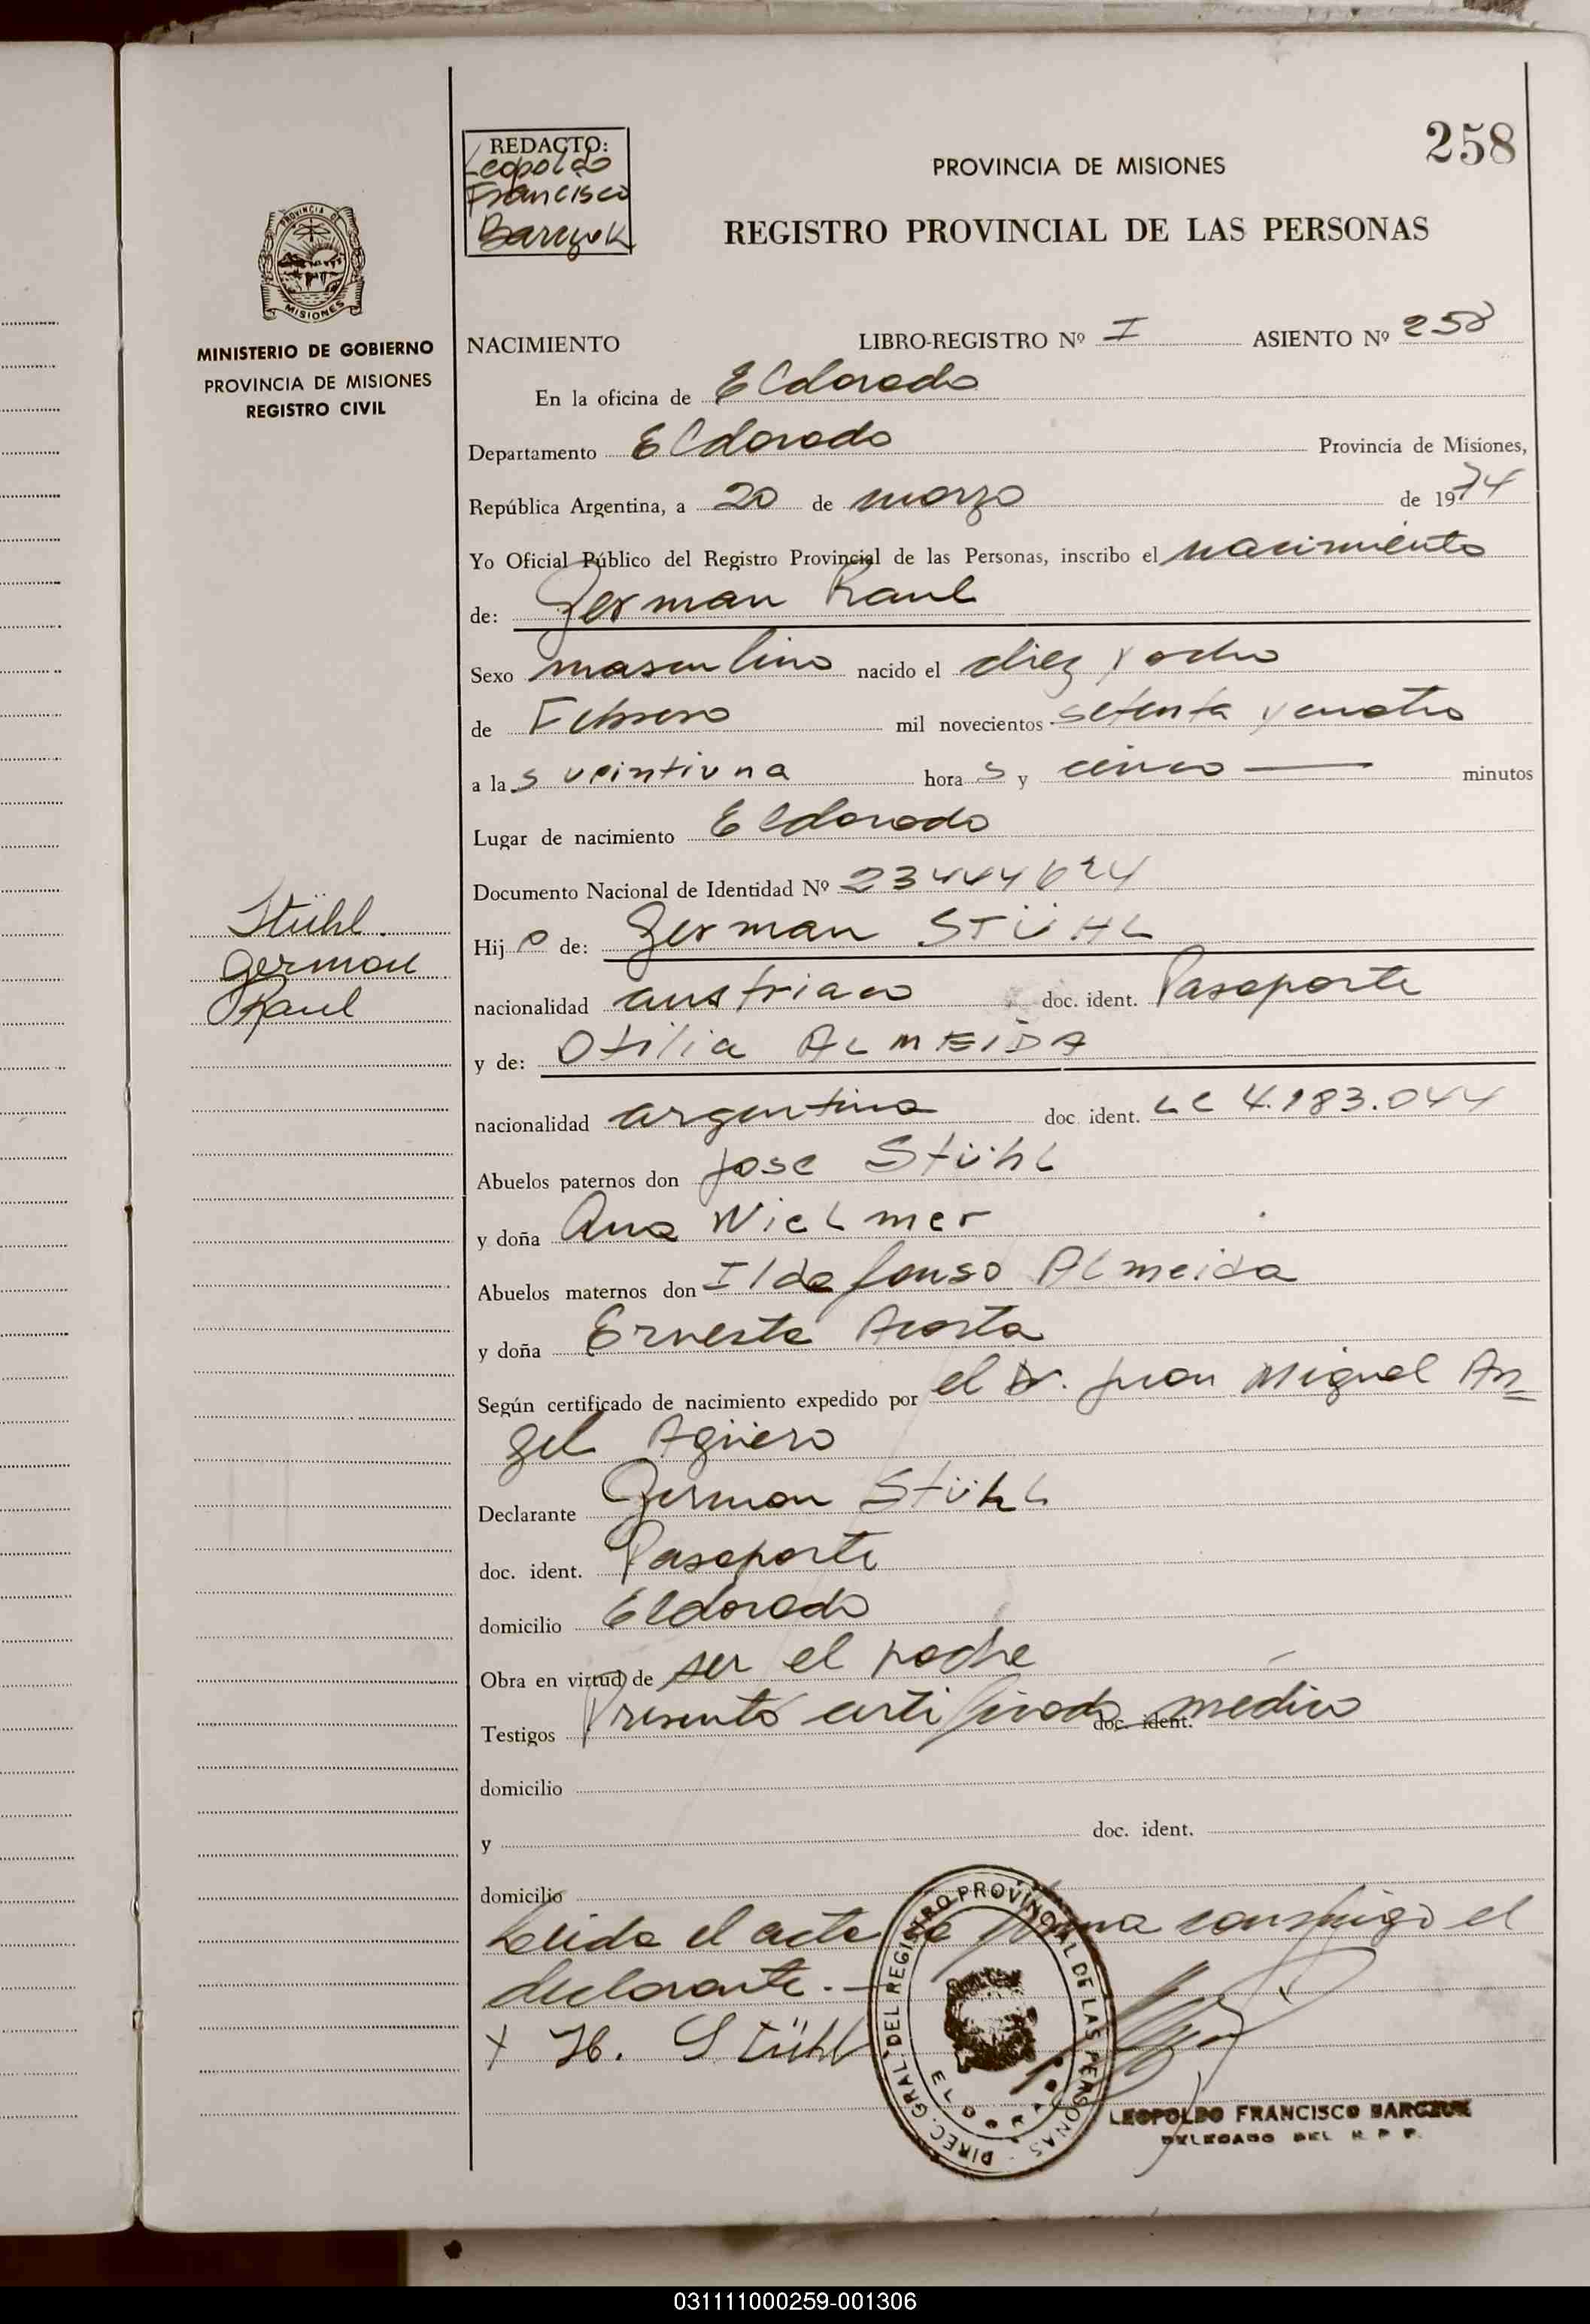 258
REDACTO:
Leopoldo
Francisco
Barczuk
PROVINCIA DE MISIONES
REGISTRO PROVINCIAL DE LAS PERSONAS
PROVINCIA DE
MISIONES
MINISTERIO DE GOBIERNO
PROVINCIA DE MISIONES
REGISTRO CIVIL
NACIMIENTO LIBRO-REGISTRO Nº I ASIENTO Nº 258
En la oficina de Eldorado
Departamento Eldorado Provincia de Misiones,
República Argentina, a 20 de marzo de 1974
Yo Oficial Público del Registro Provincial de las Personas, inscribo el nacimiento
de: German Raul
Sexo masculino nacido el diez y ocho
de Febrero mil novecientos setenta y cuatro
a las veintiuna horas y cinco minutos
Lugar de nacimiento Eldorado
Documento Nacional de Identidad Nº 23444624
Stühl.
German
Raul
Hijo de: German STÜHL
nacionalidad austriaco doc. ident. Pasaporte
y de: Otilia ALMEIDA
nacionalidad argentina doc. ident. LC 4.183.044
Abuelos paternos don Jose Stühl
y doña Ana Wielmer
Abuelos maternos don Ildefonso Almeida
y doña Ernesta Acosta
Según certificado de nacimiento expedido por el Dr. Juan Miguel An=
gel Agüero
Declarante German Stühl
doc. ident. Pasaporte
domicilio Eldorado
Obra en virtud de ser el padre
Testigos Presentó certificado doc. ident. médico
domicilio
y doc. ident.
domicilio
Leida el acta la firma conmigo el
declarante.—
x H. Stühl
DIREC. GRAL. DEL REGISTRO PROVINCIAL DE LAS PERSONAS
LEOPOLDO FRANCISCO BARCZUK
DELEGADO DEL R. P. P.
031111000259-001306